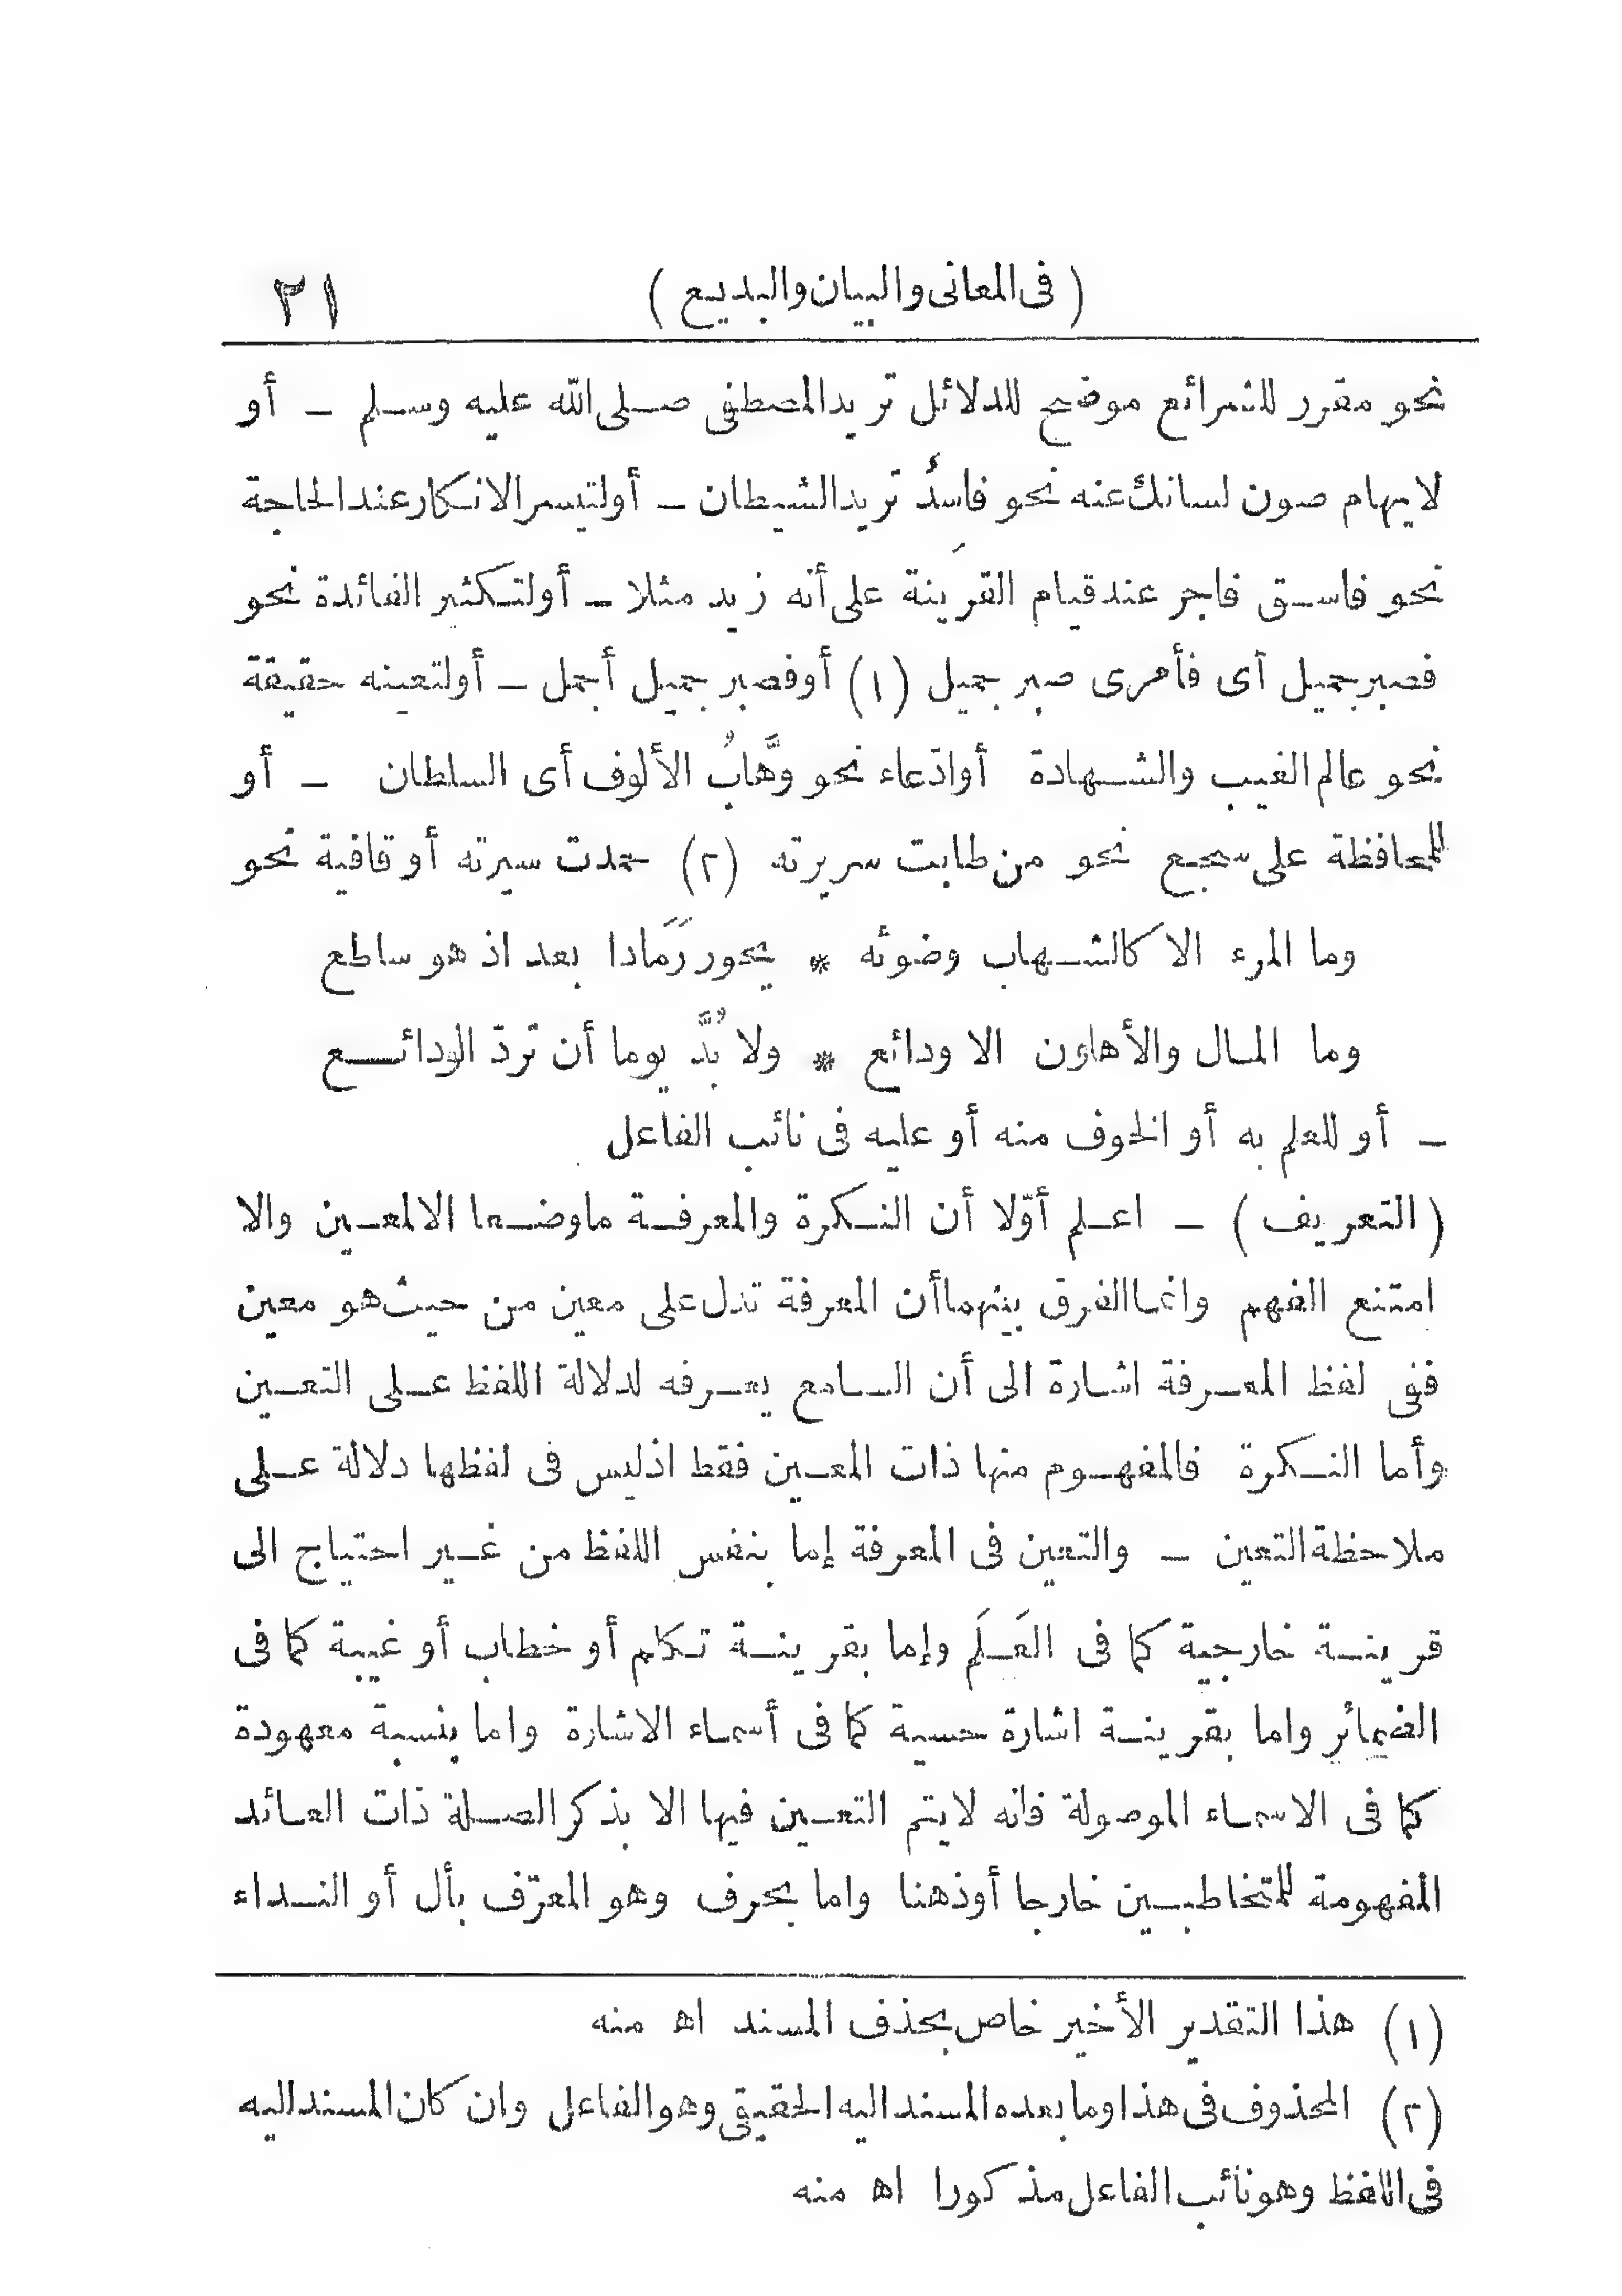 ( فى المعانى والبيان والبديع ) ٣١
نحو مقرر للشرائع موضح للدلائل تريد المصطفى صلى الله عليه وسلم – أو
لايهام صون لسانك عنه نحو فاسدٌ تريد الشيطان – أولتيسر الانكار عند الحاجة
نحو فاسق فاجر عند قيام القرَينة على أنه زيد مثلا – أولتكثير الفائدة نحو
فصبر جميل أى فأمرى صبر جميل (١) أوفصبر جميل أجمل – أولتعينه حقيقة
نحو عالم الغيب والشهادة أوادّعاء نحو وهَّابُ الألوف أى السلطان – أو
للمحافظة على سجع نحو من طابت سريرته (٢) حمدت سيرته أو قافية نحو
وما المرء الا كالشهاب وضوئه * يحور رَمَادا بعد اذ هو ساطع
وما المال والأهلون الا ودائع * ولا بُدَّ يوما أن تردّ الودائع
– أو للعلم به أو الخوف منه أو عليه فى نائب الفاعل
( التعريف ) – اعلم أوّلا أن النكرة والمعرفة ماوضعا الالمعين والا
امتنع الفهم وانما الفرق بينهما أن المعرفة تدل على معين من حيث هو معين
ففى لفظ المعرفة اشارة الى أن السامع يعرفه لدلالة اللفظ على التعين
وأما النكرة فالمفهوم منها ذات المعين فقط اذليس فى لفظها دلالة على
ملاحظة التعين – والتعين فى المعرفة إما بنفس اللفظ من غير احتياج الى
قرينة خارجية كما فى العَلَم وإما بقرينة تكلم أو خطاب أو غيبة كما فى
الضمائر واما بقرينة اشارة حسية كما فى أسماء الاشارة واما بنسبة معهودة
كما فى الاسماء الموصولة فانه لايتم التعين فيها الا بذكر الصلة ذات العائد
المفهومة للمتخاطبين خارجا أوذهنا واما بحرف وهو المعرّف بأل أو النداء
(١) هذا التقدير الأخير خاص بحذف المسند اه منه
(٢) المحذوف فى هذا وما بعده المسند اليه الحقيقى وهو الفاعل وان كان المسند اليه
فى اللفظ وهو نائب الفاعل مذكورا اه منه